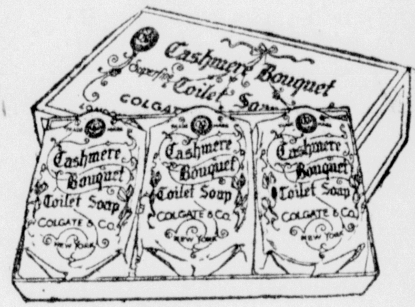 Cashmere Bouquet
Superfine Toilet Soap
COLGATE
Cashmere
Bouquet
Toilet Soap
COLGATE & CO.
NEW YORK
Cashmere
Bouquet
Toilet Soap
COLGATE & CO.
NEW YORK
Cashmere
Bouquet
Toilet Soap
COLGATE & CO.
NEW YORK